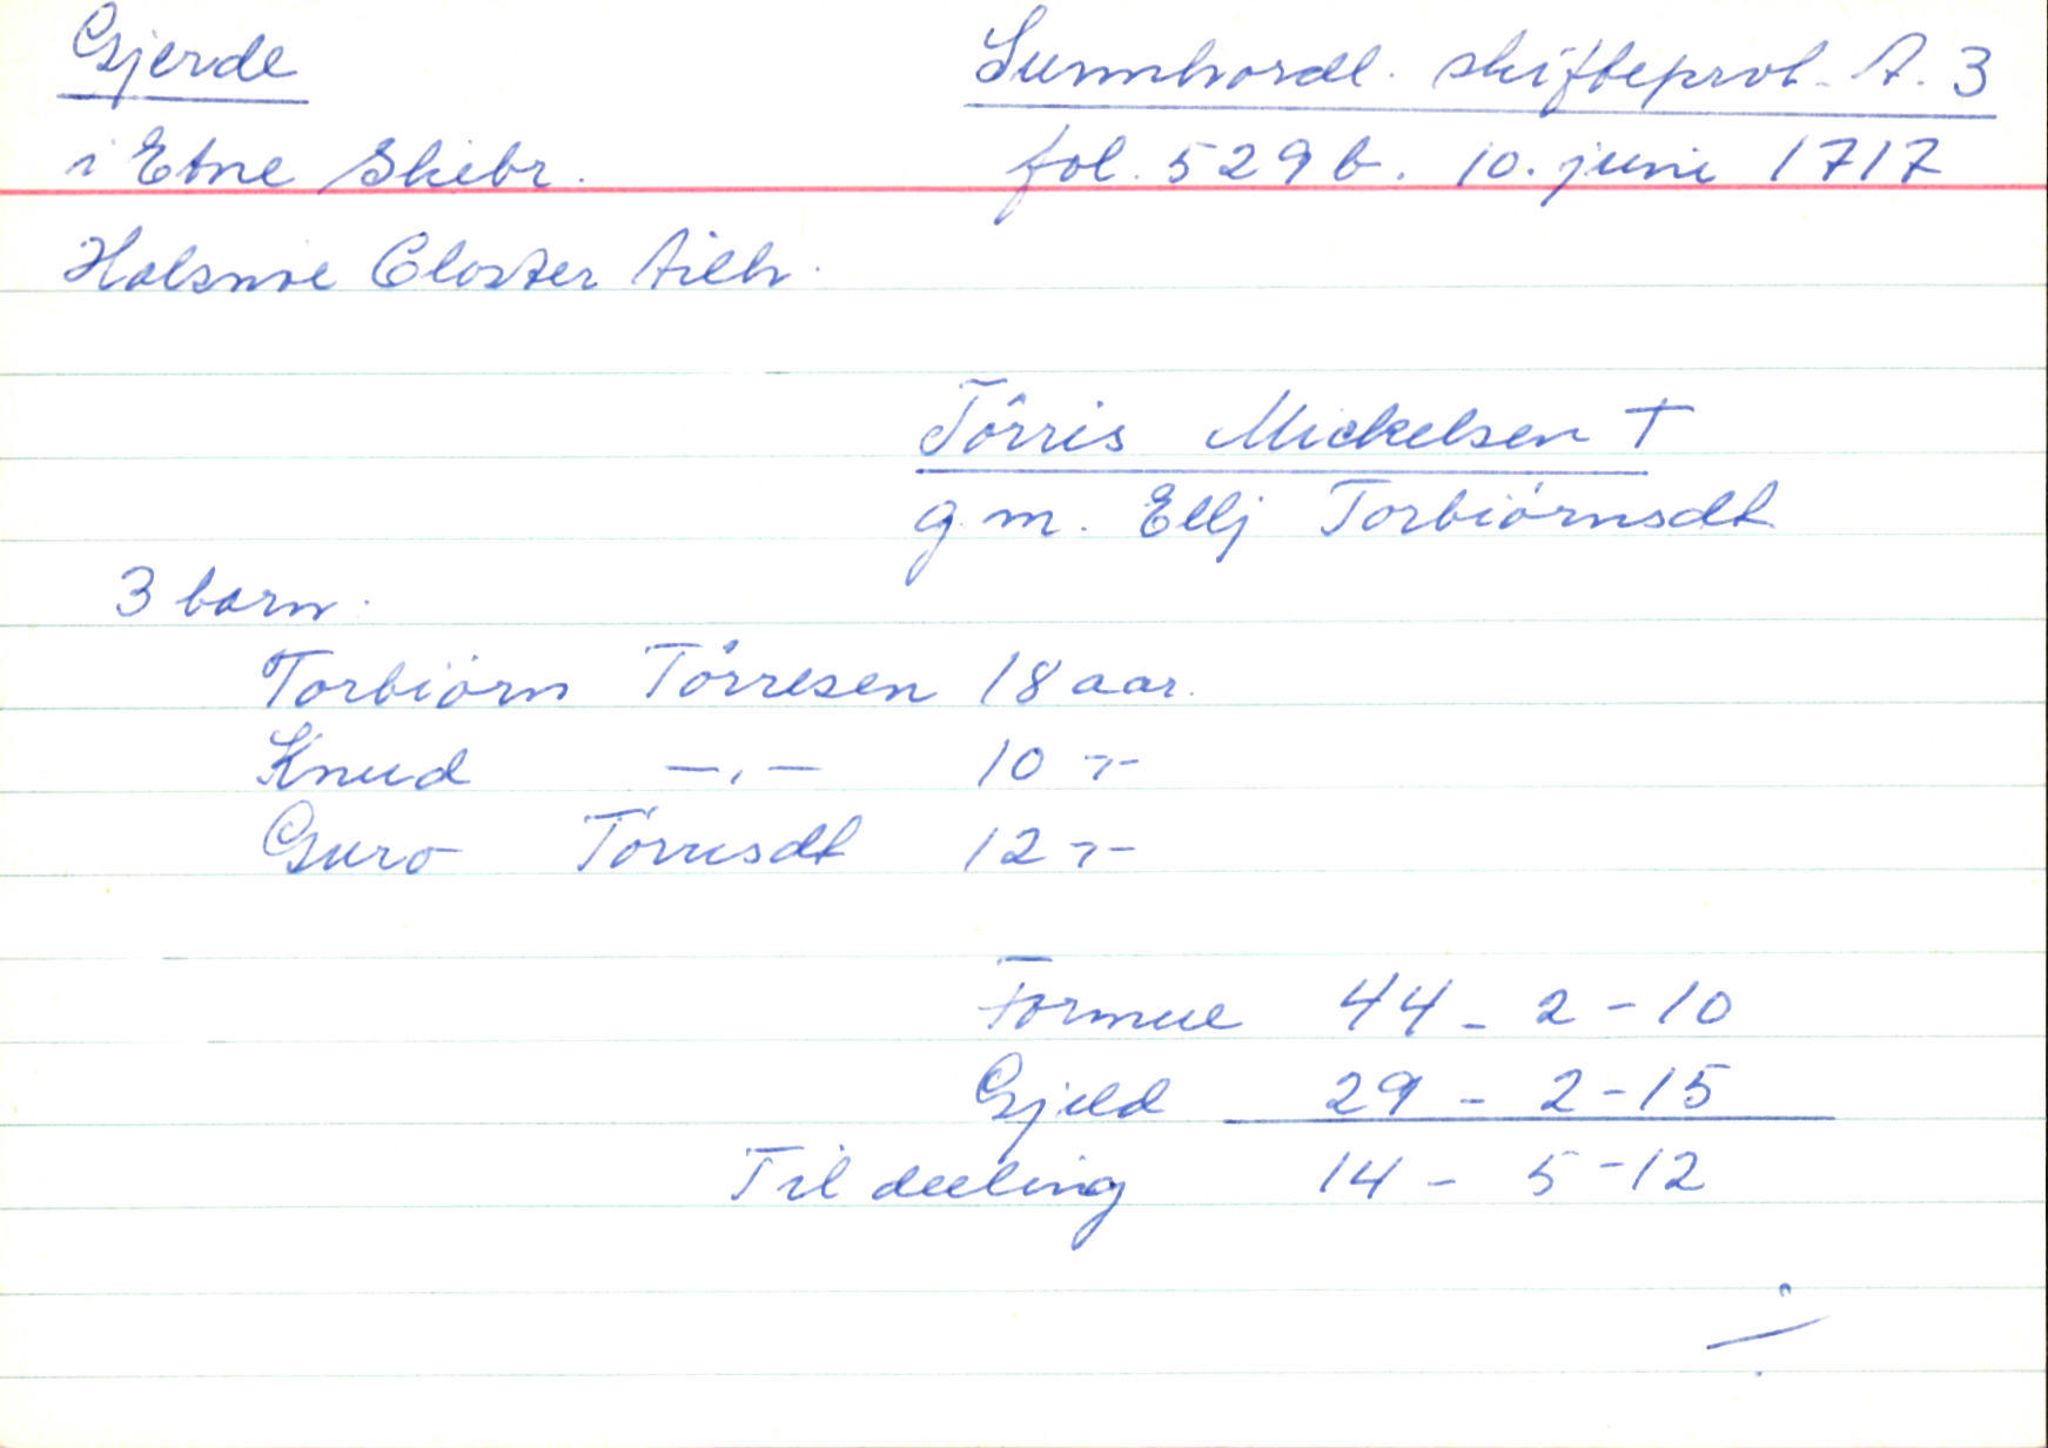 Gjerde
Sunnhordl. skifteprot. A. 3
i Etne Skibr.
fol. 529 b. 10. juni 1717
Halsnøe Closter tilh.
Tørris Mickelsen †
g. m. Ellj Torbiørnsdt
3 barn.
Torbiørn Tørresen 18 aar.
Knud —,— 10 -,-
Guro Tørresdt 12 -,-
Formue 44 - 2 - 10
Gjeld 29 - 2 - 15
Til deeling 14 - 5 - 12